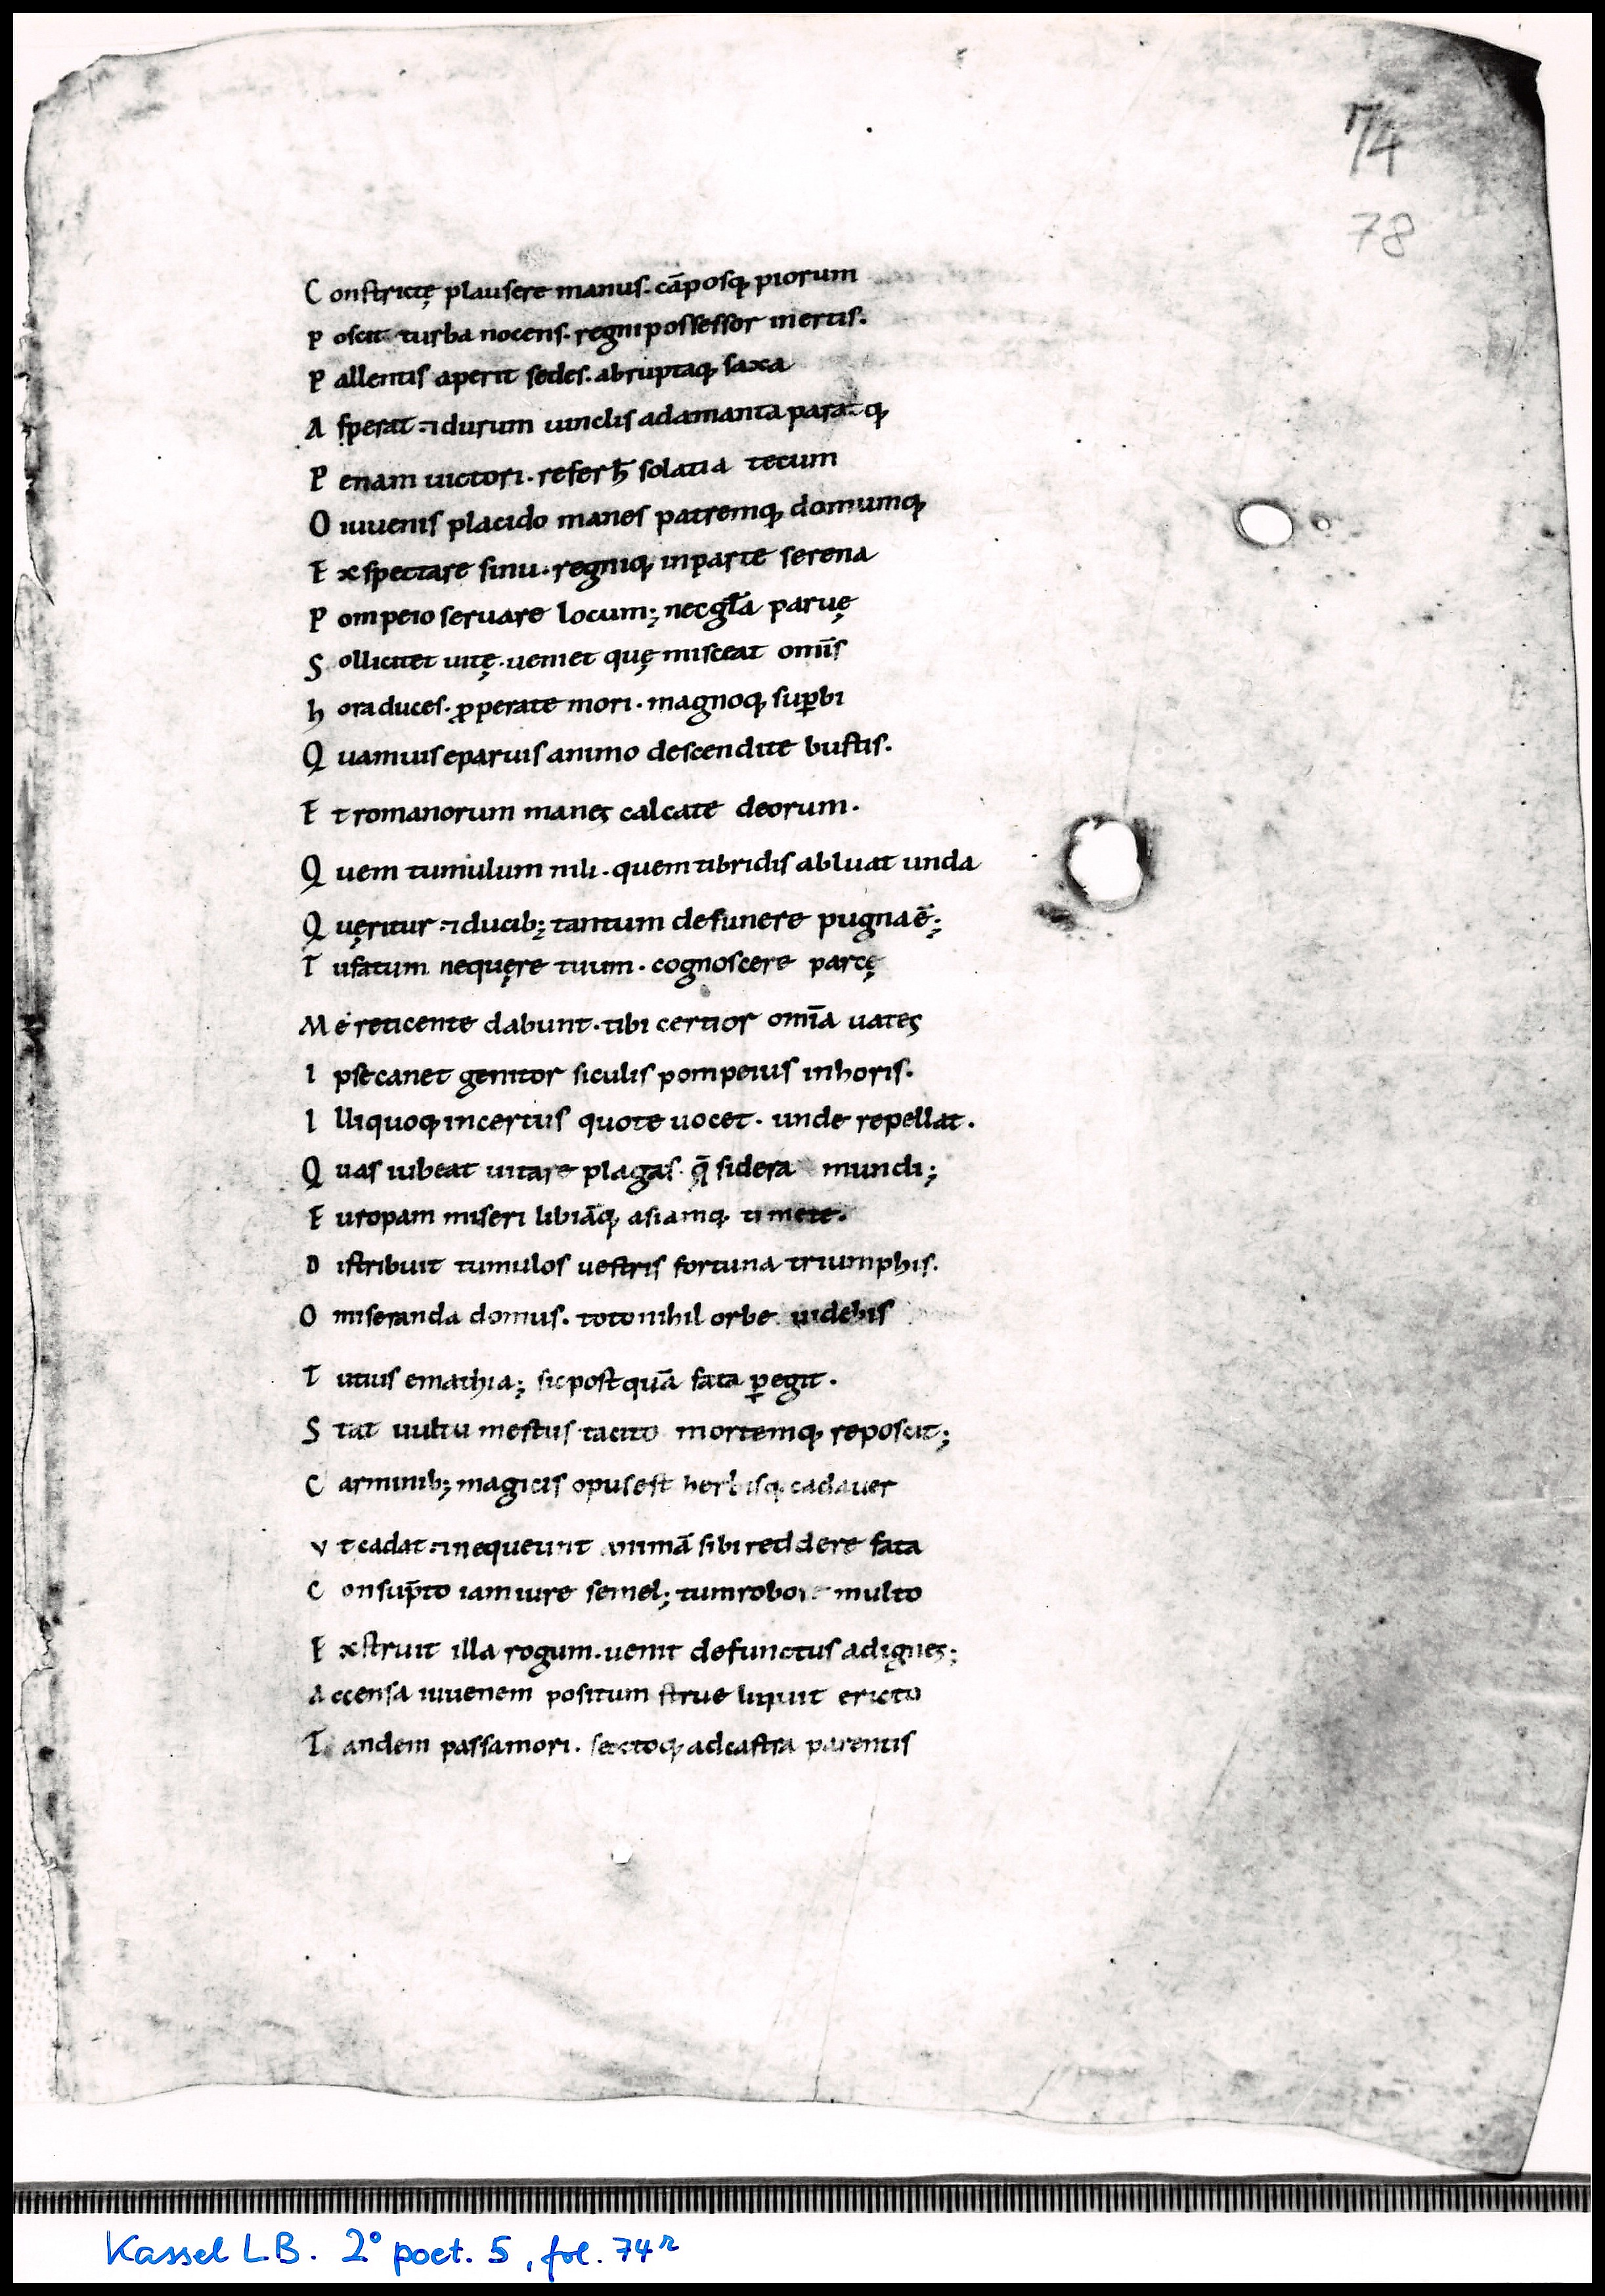 74
78
C onstrictę plausere manus. cāposq; piorum
P oscit turba nocens. regni possessor inertis.
P allentis aperit sedes. abruptaq; saxa
A sperat ⁊ durum uinclis adamanta parat q;
P enam uictori. refer h̄ solatia tecum
O iuuenis placido manes patremq; domumq;
E xspectare sinu. regniq; inparte serena
P ompeio seruare locum; nec gl̄a paruę
S ollicitet uitę. ueniet quę misceat om̄is
h ora duces. ꝓperate mori. magnoq; suꝑbi
Q uamuis eparuis animo descendite bustis.
E t romanorum manes calcate deorum.
Q uem tumulum nili. quem tibridis abluat unda
Q uęritur ⁊ ducib; tantum defunere pugna ē;
T u fatum nequęre tuum. cognoscere parcę
M e reticente dabunt. tibi certior om̄ia uates
I pse canet genitor siculis pompeius inhoris.
I lli quoq; incertus quo te uocet. unde repellat.
Q uas iubeat uitare plagas. q̄ sidera mundi;
E uropam miseri libiāq; asiamq; timete.
D istribuit tumulos uestris fortuna triumphis.
O miseranda domus. toto nihil orbe uidebis
T utius emathia; sic postquā fata ꝑegit.
S tat uultu mestus tacito mortemq; reposcit;
C arminib; magicis opus est herbisq; cadauer
V t cadat ⁊ nequeunt animā sibi reddere fata
C onsūpto iam iure semel; tum robore multo
E xstruit illa rogum. uenit defunctus adignes;
A ccensa iuuenem positum strue liquit ericto
T andem passa mori. sextoq; ad castra parentis
Kassel L.B. 2° poet. 5, fol. 74r